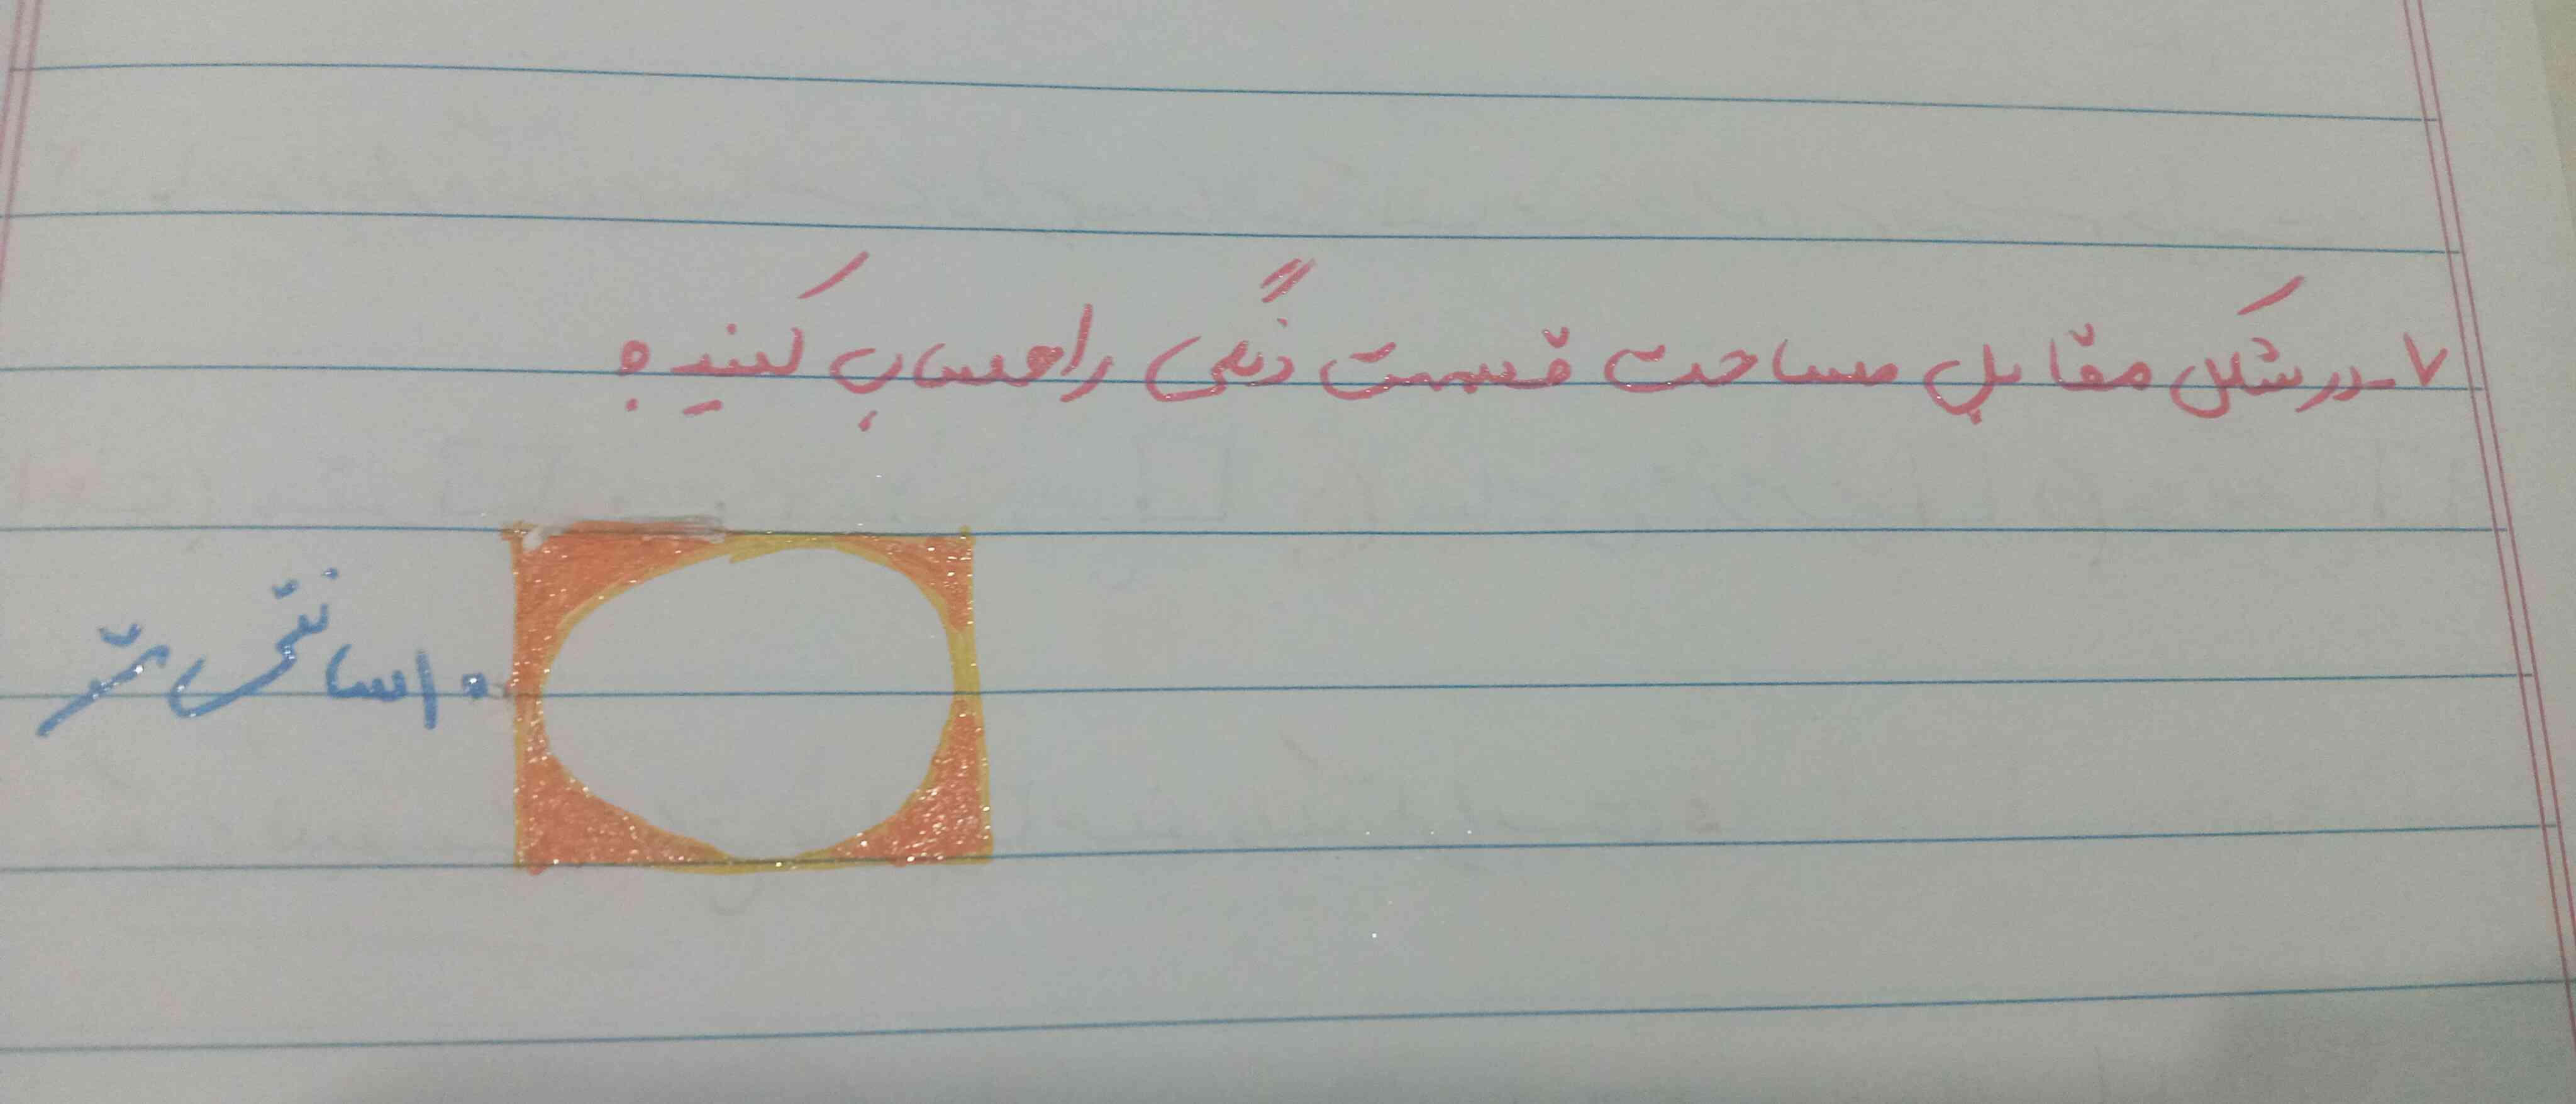 ۷- در شکل مقابل مساحت قسمت رنگی را حساب کنید؟
۱۰ سانتی متر